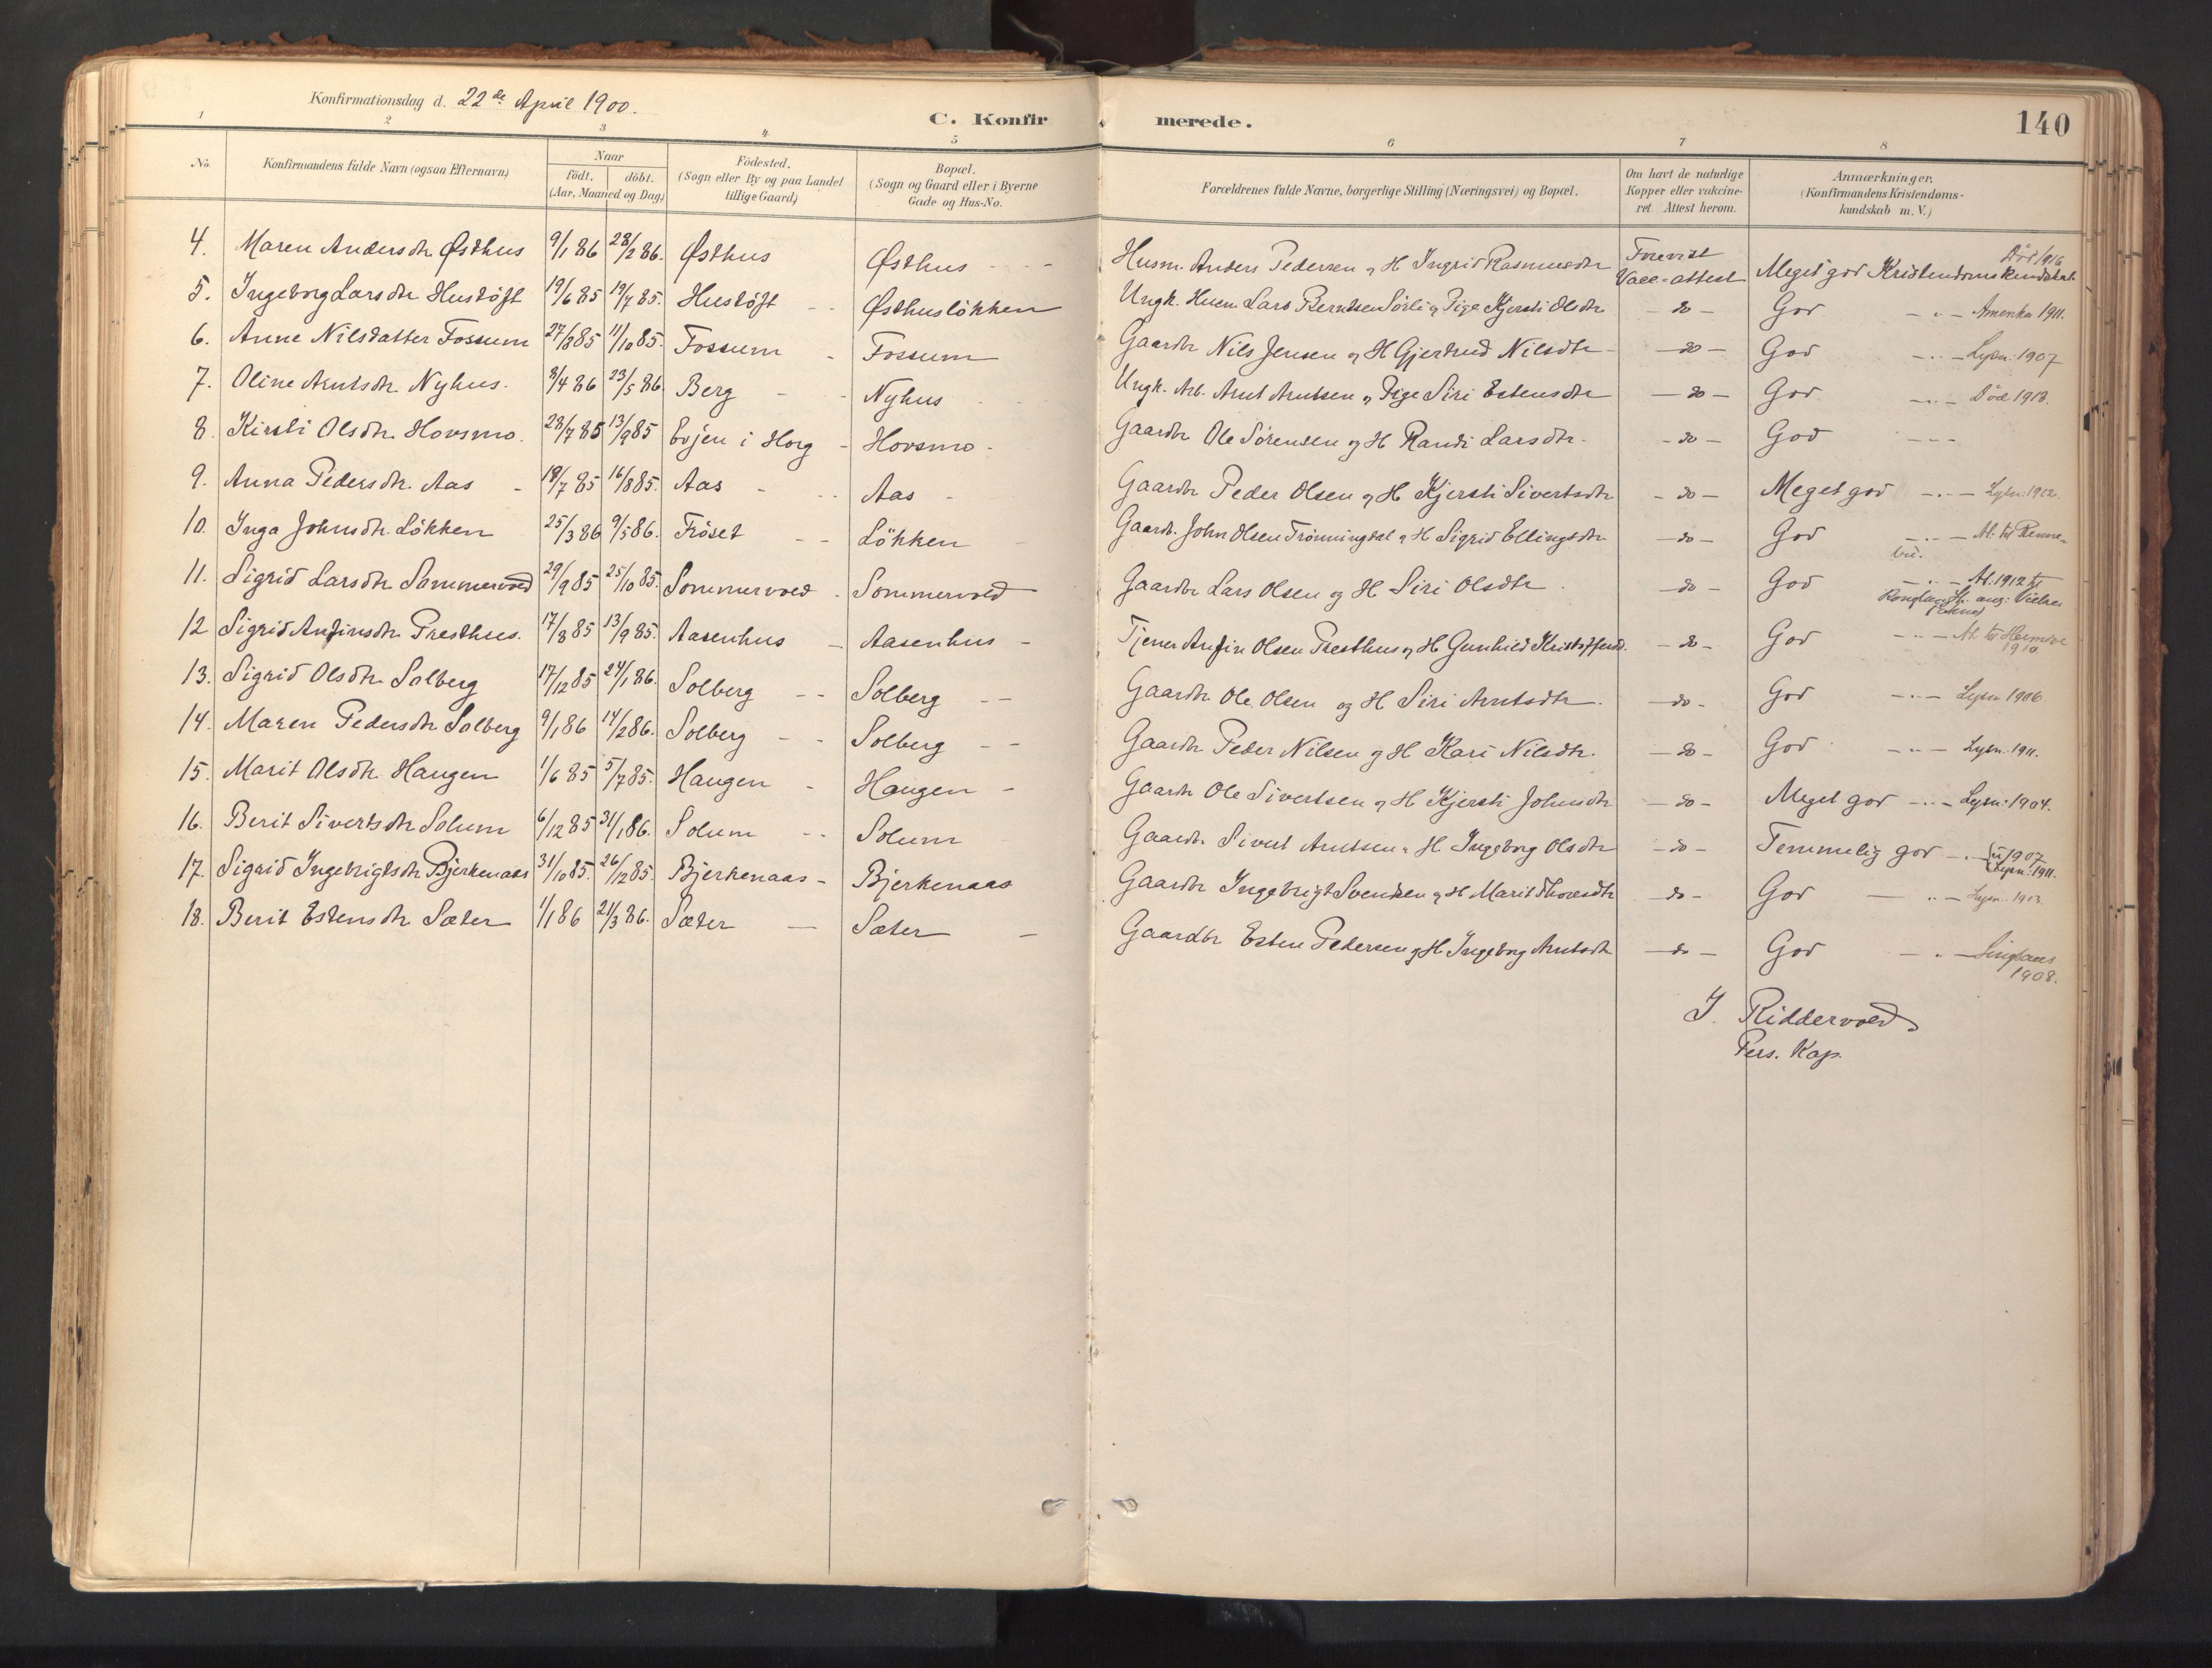 Konfirmationsdag d. 22de April 1900.
C. Konfirmerede.
140
1 2 3 4 5 6 7 8
No. Konfirmandens fulde Navn (ogsaa Efternavn)
Naar födt. döbt. (Aar, Maaned og Dag)
Födested. (Sogn eller By og paa Landet tillige Gaard)
Bopæl. (Sogn og Gaard eller i Byerne Gade og Hus-No.
Forældrenes fulde Navne, borgerlige Stilling (Næringsvei) og Bopæl.
Om havt de naturlige Kopper eller vakcineret. Attest herom.
Anmærkninger. (Konfirmandens Kristendomskundskab m. V.)
4. Maren Andersdtr Østhus 9/1 86 28/2 86. Østhus Østhus - - Husm. Anders Pedersen og H Ingrid Rasmusdtr Forevist Vacc-attest Meget god Kristendomskundskab Död 1916
5. Ingeborg Larsdtr Hustöft 19/6 85 19/7 85. Hustöft - - Østhuslökken Ungk. Husm. Lars Berntsen Sørli og Pige Kjersti Olsdtr - do - God - " - Amerika 1911.
6. Anne Nilsdatter Fossum 27/8 85 11/10 85. Fossum - Fossum Gaardbr Nils Jensen og H Gjertrud Nilsdtr - do - God - " - Lysn: 1907
7. Oline Arntsdtr Nyhus. 8/4 86 23/5 86. Berg - - Nyhus Ungk. Arb. Arnt Arntsen og Pige Siri Estensdtr - do - God - " - Död 1913.
8. Kirsti Olsdtr. Hovsmo. 28/7 85 13/9 85 Evjen i Horg - Hovsmo - Gaardbr Ole Sörensen og H Randi Larsdtr. - do - God - - -
9. Anna Pedersdtr. Aas - 18/7 85 16/8 85. Aas - - Aas - Gaardbr Peder Olsen og H Kjersti Sivertsdtr - do - Meget god - " - Lysn: 1912.
10. Inga Johnsdtr. Lökken 25/3 86 9/5 86. Fröset - - Lökken - Gaardb. John Olsen Trönningdal og H Sigrid Ellingsdtr - do - God - " - At. til Rennebu.
11. Sigrid Larsdtr Sommervold 29/9 85 25/10 85. Sommervold - Sommervold Gaardbr Lars Olsen og H Siri Olsdtr. - do - God - " - At. 1912 til
12 Sigrid Anfinsdtr Presthus. 17/8 85 13/9 85. Aasenhus - Aasenhus - Tjener Anfin Olsen Presthus og H Gunhild Kristoffersd. - do - God - " - At. til 1910.
13. Sigrid Olsdtr Solberg 17/12 85 24/1 86. Solberg - - Solberg - - Gaardbr Ole Olsen og H Siri Arntsdtr. - do - God - " - Lysn 1906.
14. Maren Pedersdtr Solberg 9/1 86 14/2 86. Solberg - - Solberg - - Gaardbr Peder Nilsen og H Kari Nilsdtr. - do - God - " - Lysn. 1911.
15. Marit Olsdtr. Haugen 1/6 85 5/7 85. Haugen - Haugen - Gaardbr Ole Sivertsen og H Kjersti Johnsdtr - do - Meget god - " - Lysn: 1904.
16. Berit Sivertsdtr Solum 6/12 85 31/1 86. Solum - - Solum Gaardbr. Sivert Arntsen og H Ingeborg Olsdtr - do - Temmelig god - " - 1907 Lysn: 1911.
17. Sigrid Ingebrigtsdtr Bjerkenaas 31/10 85. 26/12 85. Bjerkenaas - Bjerkenaas Gaardbr Ingebrigt Svendsen og H Marit Thoresdtr - do - God - " - Lysn. 1913.
18. Berit Estensdtr Sæter 1/1 86 21/3 86. Sæter - Sæter - Gaardbr Esten Pedersen og H Ingeborg Arntsdtr - do - God - " - Singsaas 1908.
J. Riddervold
Pers. Kap.